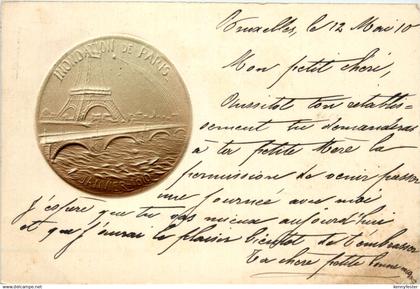 INONDATION DE PARIS
JANVIER 1910
Bruxelles, le 12 Mai 10
Mon petit chéri,
Aussitôt ton rétablis-
sement tu demanderas
à ta petite Mère la
permission de venir passer
une journée avec moi
J'espère que tu vas mieux aujourd'hui
et que j'aurai le plaisir bientôt de t'embrasser
Ta chère petite
© delcampe.net
kennyfester